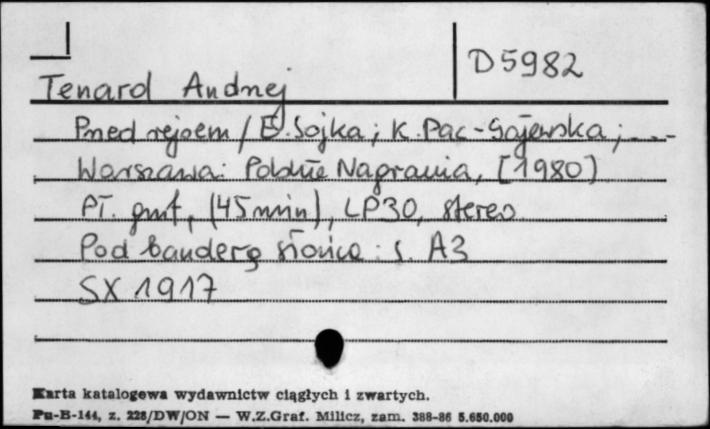 D5982
Tenard Andrzej
Przed rejsem / E. Sojka; K. Pac-Gajewska; ...-
Warszawa: Polskie Nagrania, [1980]
Pł. gmf, (45 min), LP30, stereo
Pod banderą słońca: s. A3
SX 1917
Karta katalogowa wydawnictw ciągłych i zwartych.
Pu-B-144, z. 228/DW/ON — W.Z.Graf. Milicz, zam. 388-86 5.650.000